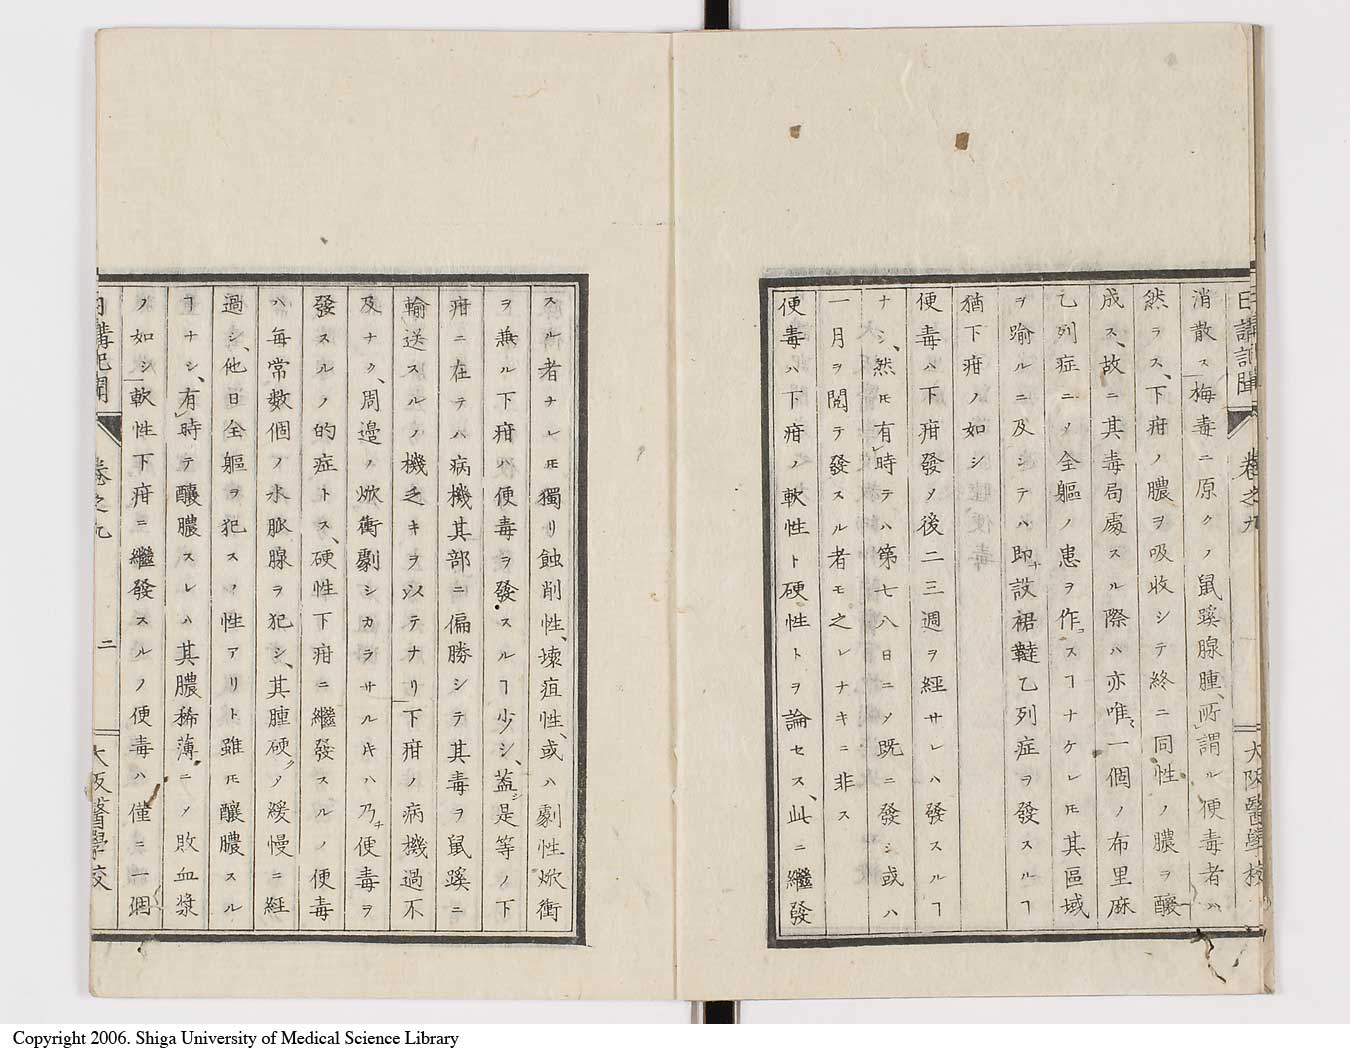 日講記聞 卷之九 大阪醫學校
消散ス梅毒ニ原クノ鼠蹊腺腫、所謂ル便毒者ハ
然ラス、下疳ノ膿ヲ吸收シテ終ニ同性ノ膿ヲ釀
成ス、故ニ其毒局處スル際ハ亦唯一個ノ布里麻
乙列症ニ〆全軀ノ患ヲ作スヿナケレ𪜈其區域
ヲ踰ルニ及シテハ即設裙韃乙列症ヲ發スルヿ
猶下疳ノ如シ
便毒ハ下疳發〆後二三週ヲ經サレハ發スルヿ
ナシ、然𪜈有時テハ第七八日ニ〆既ニ發シ或ハ
一月ヲ閲テ發スル者モ之レナキニ非ス
便毒ハ下疳ノ軟性ト硬性トヲ論セス、此ニ繼發
スル者ナレ𪜈獨リ蝕削性、壞疽性、或ハ劇性焮衝
ヲ兼ル下疳ハ便毒ヲ發スルヿ少シ、蓋シ是等ノ下
疳ニ在テハ病機其部ニ偏勝シテ其毒ヲ鼠蹊ニ
輸送スルノ機乏キヲ以テナリ下疳ノ病機過不
及ナク、周邉ノ焮衝劇シカラサルキハ乃チ便毒ヲ
發スルノ的症トス、硬性下疳ニ繼發スルノ便毒
ハ毎常数個ノ水脈腺ヲ犯シ、其腫硬ク〆緩慢ニ経
過シ、他日全軀ヲ犯スノ性アリト雖𪜈釀膿スル
ヿナシ、有時テ釀膿スレハ其膿稀薄ニ〆敗血漿
ノ如シ軟性下疳ニ繼發スルノ便毒ハ僅ニ一個
日講記聞 卷之九 二 大阪醫學校
Copyright 2006. Shiga University of Medical Science Library